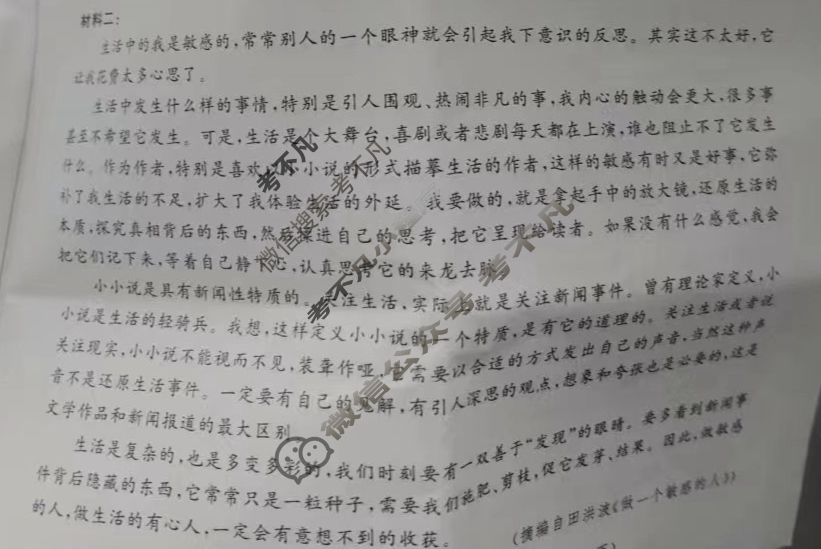 材料二：
生活中的我是敏感的，常常别人的一个眼神就会引起我下意识的反思。其实这不太好，它
让我花费太多心思了。
生活中发生什么样的事情，特别是引人围观、热闹非凡的事，我内心的触动会更大，很多事
甚至不希望它发生。可是，生活是个大舞台，喜剧或者悲剧每天都在上演，谁也阻止不了它发生
什么。作为作者，特别是喜欢 小说的形式描摹生活的作者，这样的敏感有时又是好事，它弥
补了我生活的不足，扩大了我体验生活的外延。我要做的，就是拿起手中的放大镜，还原生活的
本质，探究真相背后的东西，然后 进自己的思考，把它呈现给读者。如果没有什么感觉，我会
把它们记下来，等着自己静 心，认真思考它的来龙去脉
小小说是具有新闻性特质的。关注生活，实际上就是关注新闻事件。曾有理论家定义，小
小说是生活的轻骑兵。我想，这样定义小小说的一个特质，是有它的道理的。关注生活或者说
关注现实，小小说不能视而不见，装聋作哑，它需要以合适的方式发出自己的声音，当然这种声
音不是还原生活事件。一定要有自己的见解，有引人深思的观点，想象和夸张也是必要的，这是
文学作品和新闻报道的最大区别
生活是复杂的，也是多变多彩的，我们时刻要有一双善于“发现”的眼睛。要多看到新闻事
件背后隐藏的东西，它常常只是一粒种子，需要我们施肥、剪枝，促它发芽、结果。因此，做敏感
的人，做生活的有心人，一定会有意想不到的收获。
（摘编自田洪波《做一个敏感的人》）
考不凡
微信搜索考不凡
微信公众号考不凡